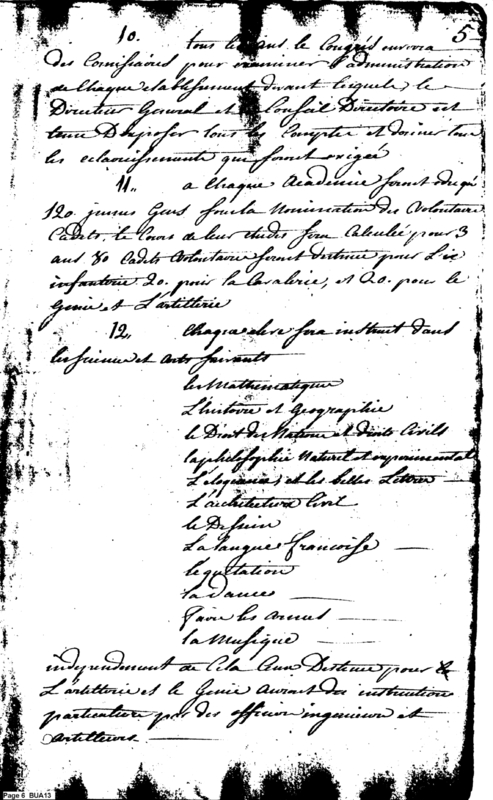 5
10. tous les ans le Congrés envoira
des Comissaires pour examiner l'administration
de Chaque etablissement devant lesquels le
Directeur General et le Conseil Directoire est
tenu D'exposer tous les Comptes et doner tous
les eclaircissements qui seront exigée
11. a Chaque Academie seront
120. jeunes Gens sous la Nomination des Volontaire
Cadets, le Cours de leur etudes sera Calculée pour 3
ans 80 Cadets Volontaire seront destinée pour L'
infanterie 20. pour la Cavalerie, et 20. pour le
Genie et L'artillerie
12. Chaque eleve sera instruit dans
les Science et arts Suivants
les Mathematique
L'histoire et Geographie
le Droit des Nations et droits Civils
la philosophie Naturel et
L'eloquence, et les belles Lettres
L'architecture Civil
le Dessin
La langue francoise
l'equitation
la dance
faire les armes
la Musique
independament de Cela Ceux Destinée pour
L'artillerie et le Genie auront des instruction
particuliere par des officiers ingenieurs et
artilleurs
Page 6 BUA13